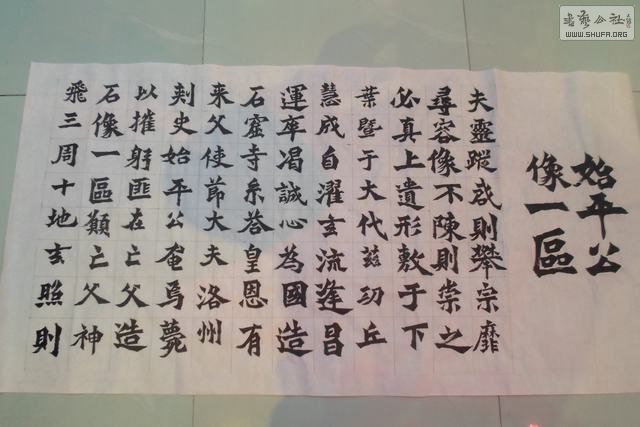 始平公
像一區
夫靈蹤啟則攀宗靡
尋容像不陳則崇之
必真上遺形敷于下
葉暨于大代茲功丘
慧成自濯玄流逢昌
運率渴誠心為國造
石窟寺系答皇恩有
来父使莭大夫洛州
刾史始平公奄焉薨
以摧躬匪在亡父造
石像一區顚亡父神
飛三周十地玄照則
書藝公社
WWW.SHUFA.ORG